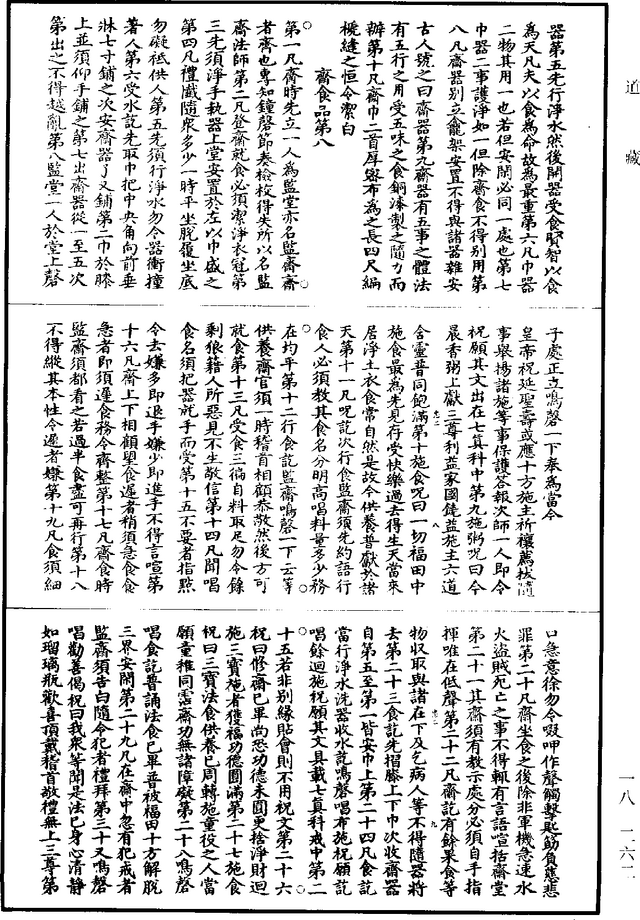 道藏
器第五先行淨水然後開器受食賢智以食
為天凡夫以食為命故為最重第六凡巾器
二物其用一也若但安閑必同一處也第七
巾器二事護淨如一但除齋食不得別用第
八凡齋器別立龕架安置不得與諸器雜安
古人號之曰齋器第九齋器有五事之體法
有五行之用受五味之食銅漆製之隨力而
辦第十凡齋巾二首厚密布為之長四尺編
縫之恒令潔白
齋食品第八
第一凡齋時先立一人為監堂亦名監齋齋
者齋也專知鐘磬節奏檢校得失所以名監
齋法師第二凡登齋就食必須潔淨衣冠第
三先須淨手執器上堂安置於左以巾盛之
第四凡禮懺隨衆多少一時平坐脫履坐底
勿礙祗供人第五先須行淨水勿令器衝撞
著人第六受水訖先取巾把中央角向前垂
淋七寸鋪之次安齋器了又鋪第二巾於膝
上並須仰手鋪之第七出齋器從一至五次
第出之不得越亂第八監堂一人於堂上磬
子處正立鳴磬一下奉為當今
皇帝祝延聖壽或應十方施主祈禳薦拔隨
事舉揚諸施等事保護答報次師一人即令
祝願其文出在七真科中第九施粥呪曰今
晨香粥上獻三尊利益家國饒益施主六道
含靈普同飽滿第十施食呪曰一切福田中
施食最為先見存受快樂過去得生天當來
居淨土衣食常自然是故今供養普獻於諸
天第十一凡呪訖次行食監齋須先約語行
食人必須教其食名分明高唱料量多少務
在均平第十二行食訖監齋鳴磬一下云等
供養齋官須一時稽首相顧恭敬然後方可
就食第十三凡受食三徧自料取足勿令餘
剩狼藉人所惡見不生敬信第十四凡聞唱
食名須把器就手而受第十五不要者指點
令去嫌多即退手嫌少即進手不得言喧第
十六凡齋上下相顧望食遲者稍須急食食
急者即須遲食務令齊整第十七凡齋食時
監齋須都看之若過半食盡可再行第十八
不得縱其本性令遲者嫌第十九凡食須細
口急意徐勿令啜呷作聲觸擊匙筯負慈悲
罪第二十凡齋坐食之後除非軍機急速水
火盜賊死亡之事不得輒有言語宣括齋堂
第二十一其齋須有教示處分必須自手指
揮唯在低聲第二十二凡齋訖有餘果食等
物收取與諸在下及乞病人等不得隨器將
去第二十三食訖先摺膝上下巾次收齋器
自第五至第一皆安巾上第二十四凡食訖
當行淨水洗器收水訖鳴磬唱布施祝願訖
唱餘迴施祝願其文具載七真科戒中第二
十五若非別緣貼會則不用祝文第二十六
祝曰修齋已畢尚恐功德未圓更捨淨財迴
施三寶施者獲福功德圓滿第二十七施食
祝曰三寶法食供養已周轉施童役之人當
願童稚同霑齋功無諸障礙第二十八鳴磬
唱食訖普誦法食已畢普被福田十方解脫
三界安閑第二十九凡在齋中忽有犯戒者
監齋須告白隨令犯者禮拜第三十又鳴磬
唱勸善偈祝曰我衆等聞是法已身心清靜
如瑠璃瓶歡喜頂戴稽首敬禮無上三尊第
一八—二六二